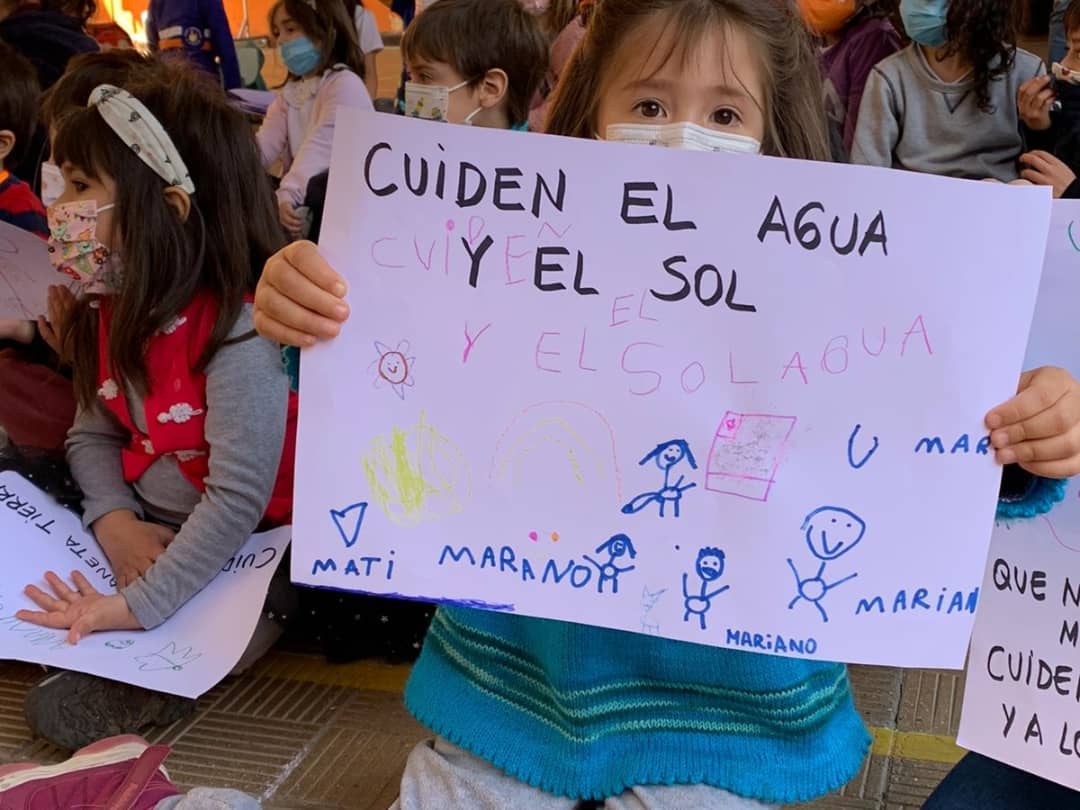 CUiDEN EL AGUA
Y EL SOL
CUiDEÑ
EL
Y EL SOL AGUA
U MAR
MATi
MARANO
MARIAN
MARiANO
PLANETA TIERRA
QUE N
M
CUiDE
Y A LO